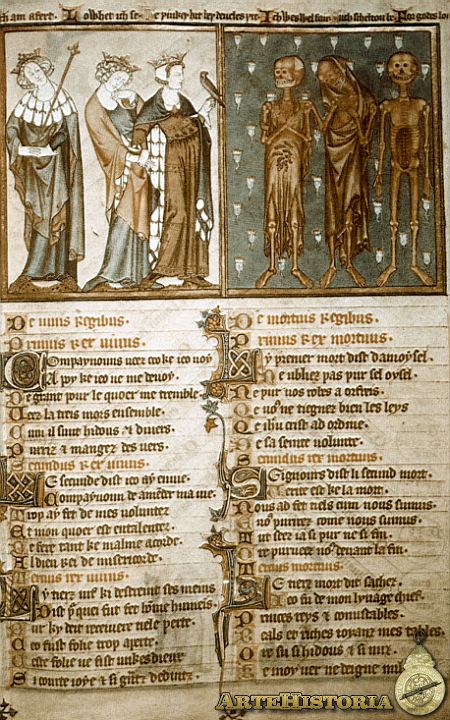 ich am afert · Lo whet ich se · Me þinkes hit bey deueles þre · Ich wes wel fair · such schel tou be · For godes loue
De uiuis regibus.
Primus rex uiuus.
Compaynouns ueez ce ke ieo uoy
A poy ke ieo ne me deuoy.
De grant pour le quoer me tremble
Ueez la treis mors ensemble.
Cum il sunt hidous & diuers.
Purriz & mangez des uers.
Secundus rex uiuus.
Le secunde dist ieo ay enuie.
Compaynoun de amender ma uie.
Trop ay fet de mes uoluntez
Et mon quoer est entalentez.
De fere tant ke malme acorde.
Al dieu rei de misericorde.
Tercius rex uiuus.
Ly tierz uif ki destreint ses meins
Dist pur quei fut fet homme humeins
ky deit receiuere tele perte.
Ceo fust folie trop aperte
Ceste folie ne fist unkes dieux
Si courte ioye & si grantz deduitz.
De mortuis regibus.
Primus rex mortuus.
Ly premer mort dist damoysel.
Ne ubliez pas pur sel oysel.
Ne pur uos robes a orfreis.
Ke uous ne tiegnez bien les leys
Ke ihu crist ad ordine.
De sa seinte uolunte.
Secundus rex mortuus.
Seignours dist li secund mort.
Uerite est ke la mort.
Nous ad fet tiels cum nous sumus.
& uous purrirez come nous sumus.
ia si pur ne si fin.
Tercius mortuus.
Le tierz mort dit sachez.
Ke ieo fu de mon lynage chief.
Princes reys & conustables.
Beals et riches ioyanz mes tables.
Ore su si hidous & si nuz.
Ke moy uer ne deigne nuls
ARTEHISTORIA